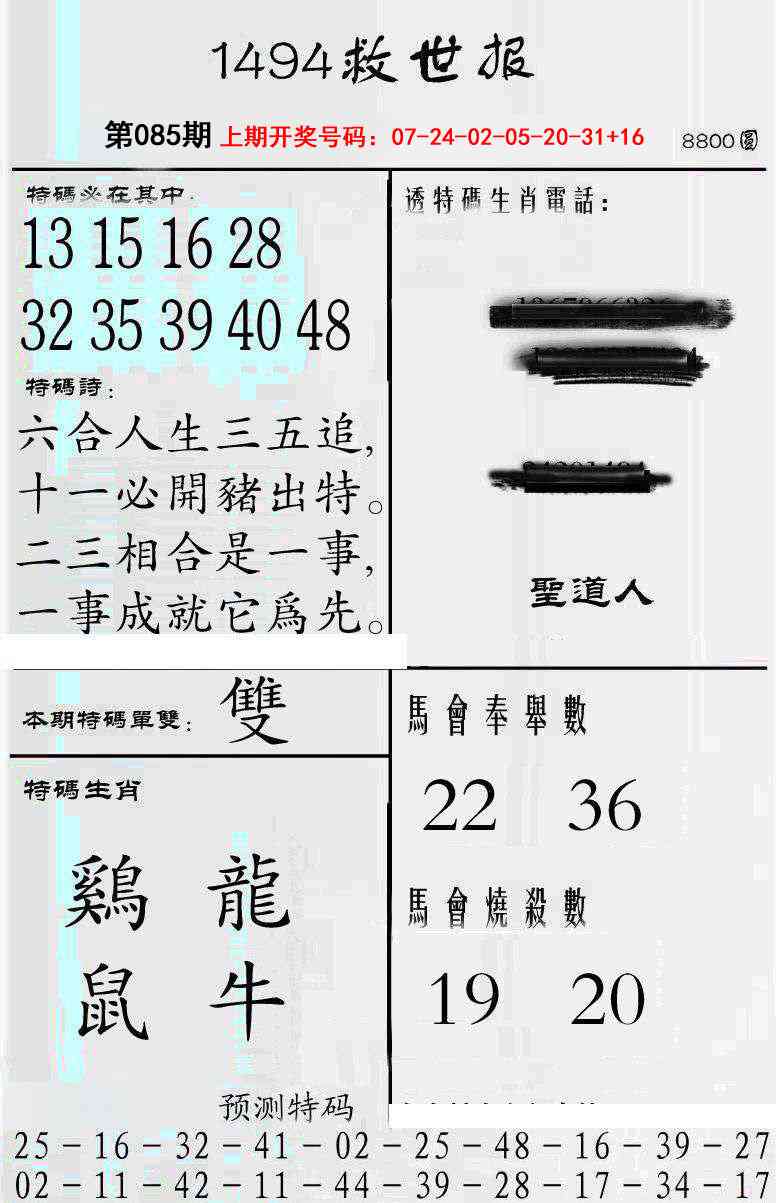 1494救世报
第085期 上期开奖号码：07-24-02-05-20-31+16 8800圓
特碼必在其中：
13 15 16 28
32 35 39 40 48
特碼詩：
六合人生三五追，
十一必開豬出特。
二三相合是一事，
一事成就它爲先。
透特碼生肖電話：
聖道人
本期特碼單雙：雙
特碼生肖
鷄 龍
鼠 牛
馬會奉舉數
22 36
馬會燒殺數
19 20
预测特码
25－16－32－41－02－25－48－16－39－27
02－11－42－11－44－39－28－17－34－17